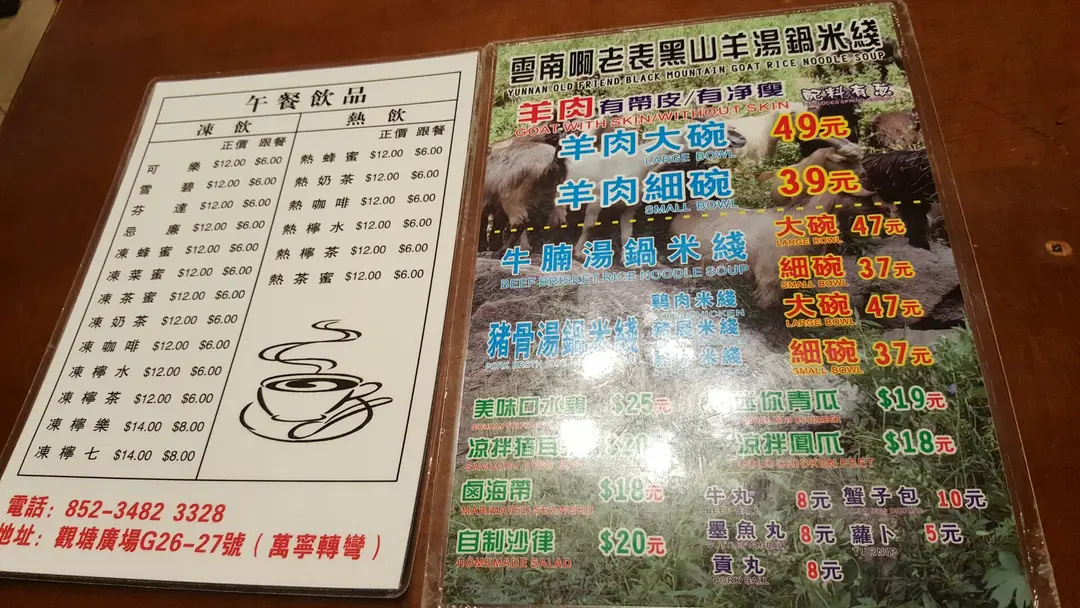 午餐飲品
凍飲
熱飲
正價 跟餐
正價 跟餐
可樂 $12.00 $6.00
雪碧 $12.00 $6.00
芬達 $12.00 $6.00
忌廉 $12.00 $6.00
凍蜂蜜 $12.00 $6.00
凍菜蜜 $12.00 $6.00
凍茶蜜 $12.00 $6.00
凍奶茶 $12.00 $6.00
凍咖啡 $12.00 $6.00
凍檸水 $12.00 $6.00
凍檸茶 $12.00 $6.00
凍檸樂 $14.00 $8.00
凍檸七 $14.00 $8.00
熱蜂蜜 $12.00 $6.00
熱奶茶 $12.00 $6.00
熱咖啡 $12.00 $6.00
熱檸水 $12.00 $6.00
熱檸茶 $12.00 $6.00
熱茶蜜 $12.00 $6.00
電話: 852-3482 3328
地址: 觀塘廣場G26-27號（萬寧轉彎）
雲南啊老表黑山羊湯鍋米綫
YUNNAN OLD FRIEND BLACK MOUNTAIN GOAT RICE NOODLE SOUP
羊肉有帶皮/有净瘦
GOAT WITH SKIN/WITHOUT SKIN
配料有
羊肉大碗 49元
LARGE BOWL
羊肉細碗 39元
SMALL BOWL
牛腩湯鍋米綫
BEEF BRISKET RICE NOODLE SOUP
大碗 47元
LARGE BOWL
細碗 37元
SMALL BOWL
豬骨湯鍋米綫
PORK BROTH
鷄肉米綫
米綫
米綫
大碗 47元
LARGE BOWL
細碗 37元
SMALL BOWL
美味口水鷄 $25元
青瓜 $19元
凉拌猪耳 $20元
凉拌鳳爪 $18元
COLD CHICKEN FEET
鹵海帶 $18元
MARINATED SEAWEED
自制沙律 $20元
HOMEMADE SALAD
牛丸 8元
BEEF BALL
蟹子包 10元
墨魚丸 8元
蘿卜 5元
TURNIP
貢丸 8元
PORK BALL